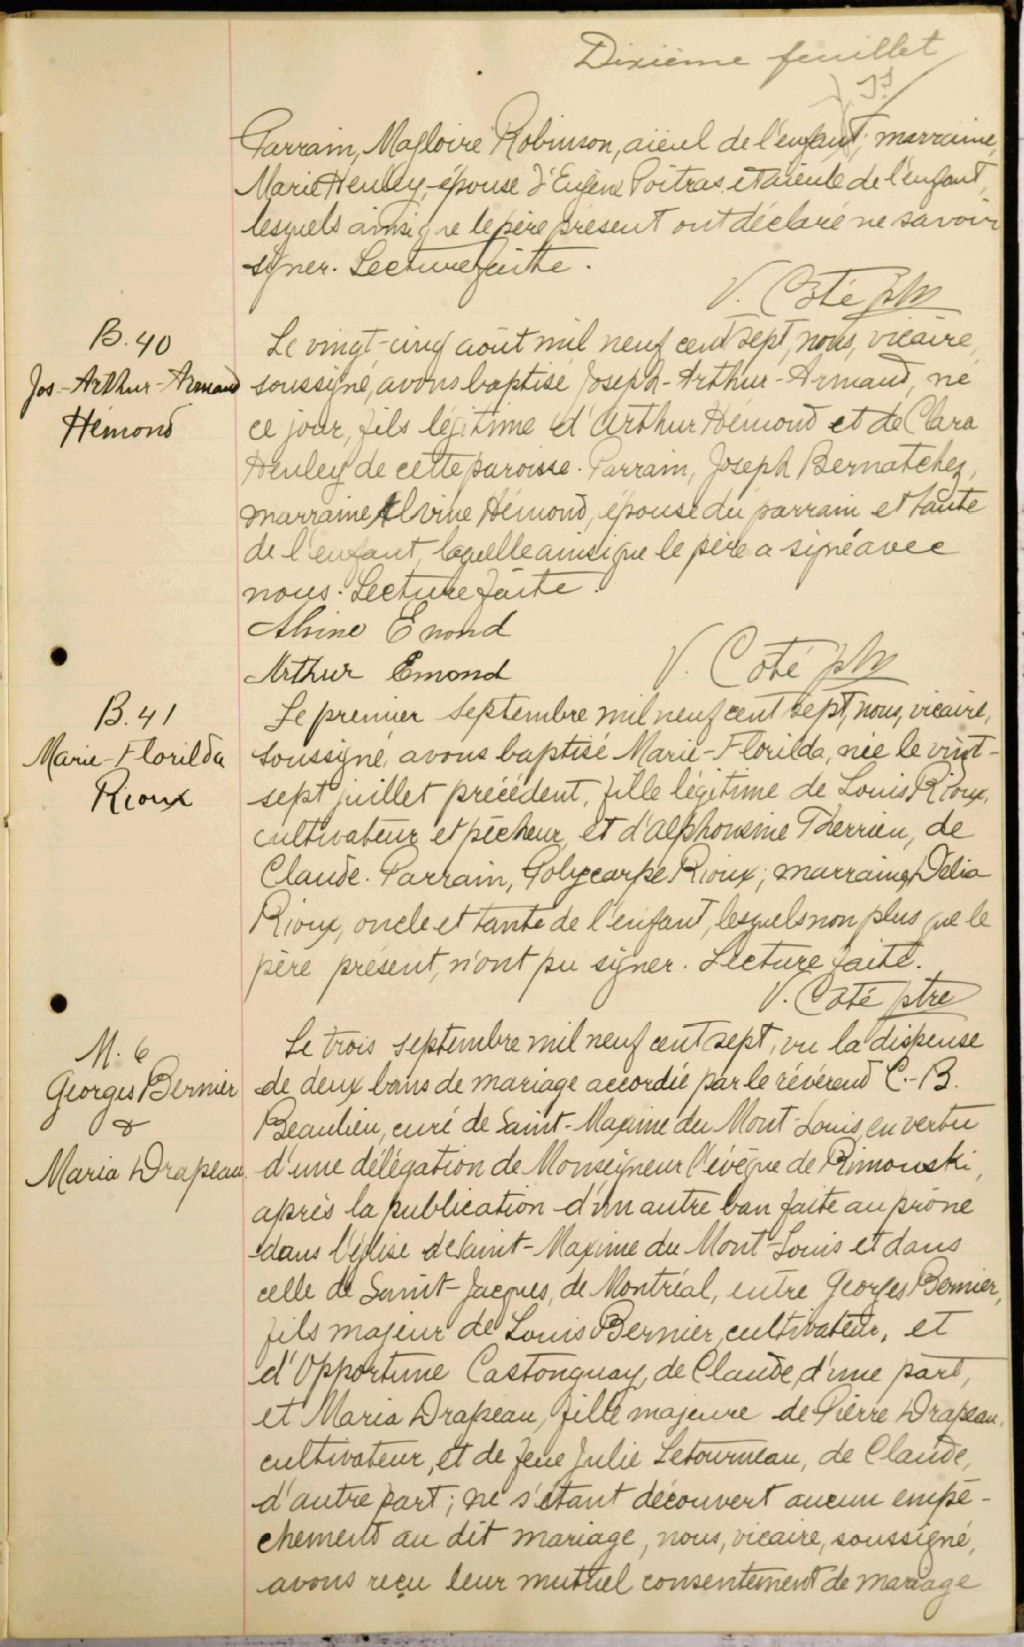 Dixième feuillet
Parrain, Magloire Robinson, aïeul de l'enfant; marraine,
Marie Henley, épouse d'Eugène Poitras et aïeule de l'enfant,
lesquels ainsi que le père présent ont déclaré ne savoir
signer. Lecture faite.
V. Coté ptre
B. 40
Jos-Arthur-Armand
Hémond
Le vingt-cinq août mil neuf cent sept, nous, vicaire,
soussigné, avons baptisé Joseph-Arthur-Armand, né
ce jour, fils légitime d'Arthur Hémond et de Clara
Henley de cette paroisse. Parrain, Joseph Bernatchez,
marraine Alvine Hémond, épouse du parrain et tante
de l'enfant, laquelle ainsi que le père a signé avec
nous. Lecture faite.
Alvine Emond
Arthur Emond
V. Coté ptre
B. 41
Marie-Florilda
Rioux
Le premier septembre mil neuf cent sept, nous, vicaire,
soussigné, avons baptisé Marie-Florilda, née le vingt-
sept juillet précédent, fille légitime de Louis Rioux,
cultivateur et pêcheur, et d'Alphonsine Therrien, de
Claude. Parrain, Polycarpe Rioux; marraine, Délia
Rioux, oncle et tante de l'enfant, lesquels non plus que le
père présent, n'ont pu signer. Lecture faite.
V. Coté ptre
M. 6
Georges Bernier
&
Maria Drapeau
Le trois septembre mil neuf cent sept, vu la dispense
de deux bans de mariage accordée par le révérend C.-B.
Beaulieu, curé de Saint-Maxime du Mont-Louis, en vertu
d'une délégation de Monseigneur l'évêque de Rimouski,
après la publication d'un autre ban faite au prône
dans l'église de Saint-Maxime du Mont-Louis et dans
celle de Saint-Jacques, de Montréal, entre Georges Bernier,
fils majeur de Louis Bernier, cultivateur, et
d'Opportune Castonguay, de Claude, d'une part,
et Maria Drapeau, fille majeure de Pierre Drapeau,
cultivateur, et de feue Julie Letourneau, de Claude,
d'autre part; ne s'étant découvert aucun empê-
chement au dit mariage, nous, vicaire, soussigné,
avons reçu leur mutuel consentement de mariage